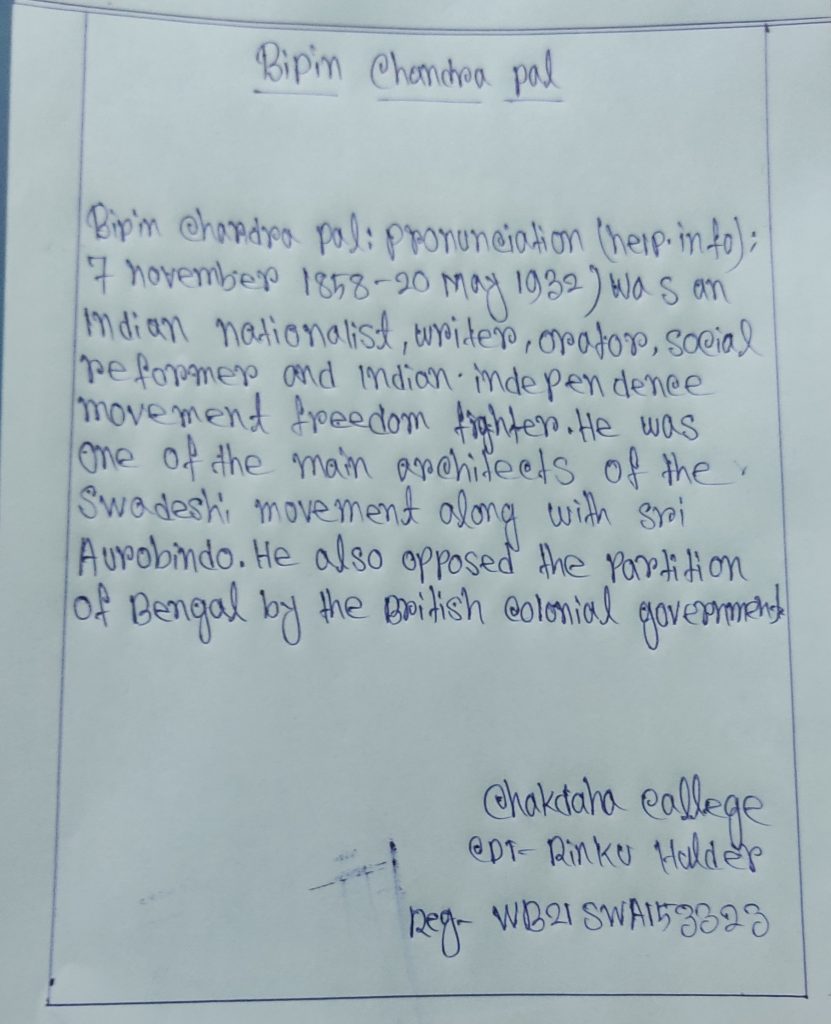 Bipin Chandra pal
Bipin Chandra pal: pronunciation (help. info);
7 november 1858-20 May 1932) was an
Indian nationalist, writer, orator, social
reformer and Indian independence
movement freedom fighter. He was
One of the main architects of the
Swadeshi movement along with sri
Aurobindo. He also opposed the partition
of Bengal by the British colonial government
Chakdaha callege
CDT- Rinku Halder
Reg- WB21 SWA153323